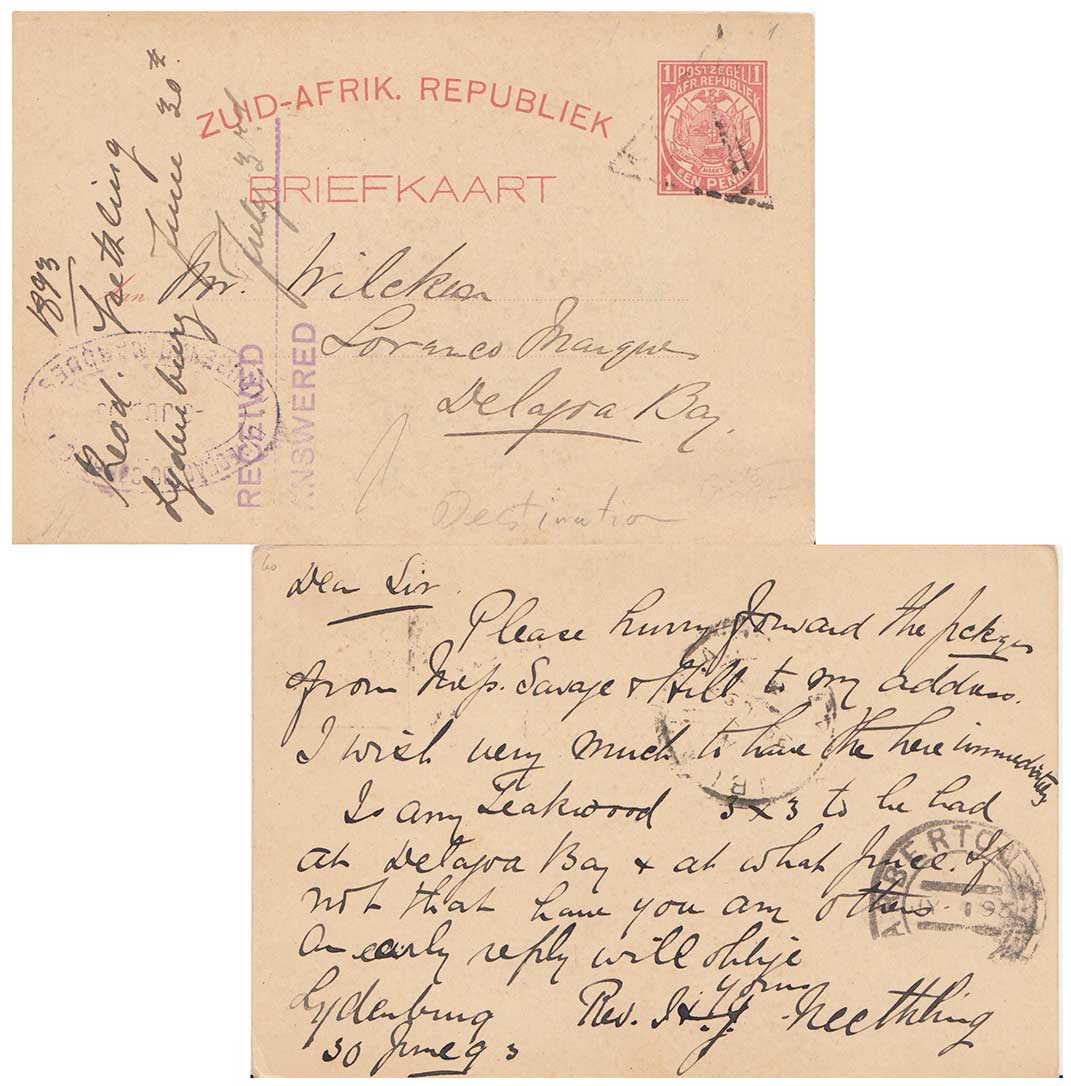 ZUID-AFRIK. REPUBLIEK
BRIEFKAART
1 POSTZEGEL 1
Z. AFR. REPUBLIEK
1 EEN PENNY 1
Aan Mr. Wilcken
Lorenco Marques
Delagoa Bay.
Destination
1893
Revd. Neethling
Lydenburg June 30th
July 3rd
RECEIVED
ANSWERED
Dear Sir.
Please hurry forward the pckges
from Mess. Savage & Hill to my address.
I wish very much to have the here immediately
Is any Teakwood 3 x 3 to be had
at Delagoa Bay & at what price. If
not that have you any others.
An early reply will oblige
yours
Lydenburg Rev. H. L. Neethling
30 June 93
BARBERTON